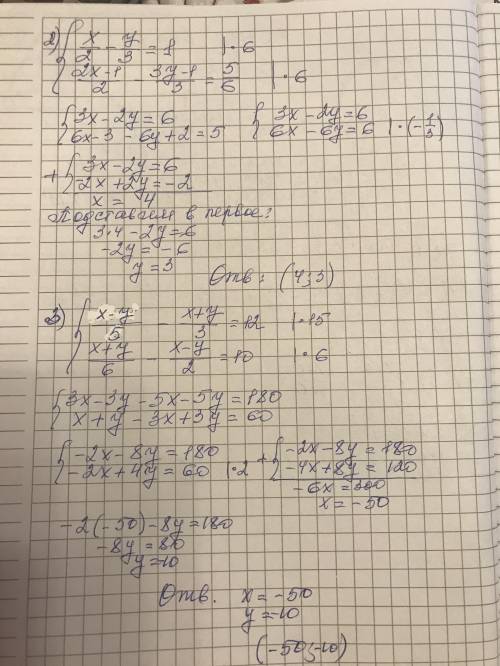 2) { x/2 - y/3 = 1 | · 6
{ 2x-1/2 - 3y-1/3 = 5/6 | · 6
{ 3x-2y=6 { 3x-2y=6
{ 6x-3-6y+2=5 { 6x-6y=6 | · (-1/3)
+ { 3x-2y=6
{ -2x+2y=-2
x = 4
Подставим в первое:
3·4-2y=6
-2y=-6
y=3
Отв: (4;3)
3) { x-y/5 - x+y/3 = 12 | · 15
{ x+y/6 - x-y/2 = 10 | · 6
{ 3x-3y-5x-5y=180
{ x+y-3x+3y=60
{ -2x-8y=180 + { -2x-8y=180
{ -2x+4y=60 | · 2 { -4x+8y=120
-6x=300
x=-50
-2(-50)-8y=180
-8y=80
y=10
Отв. x=-50
y=-10
(-50;-10)